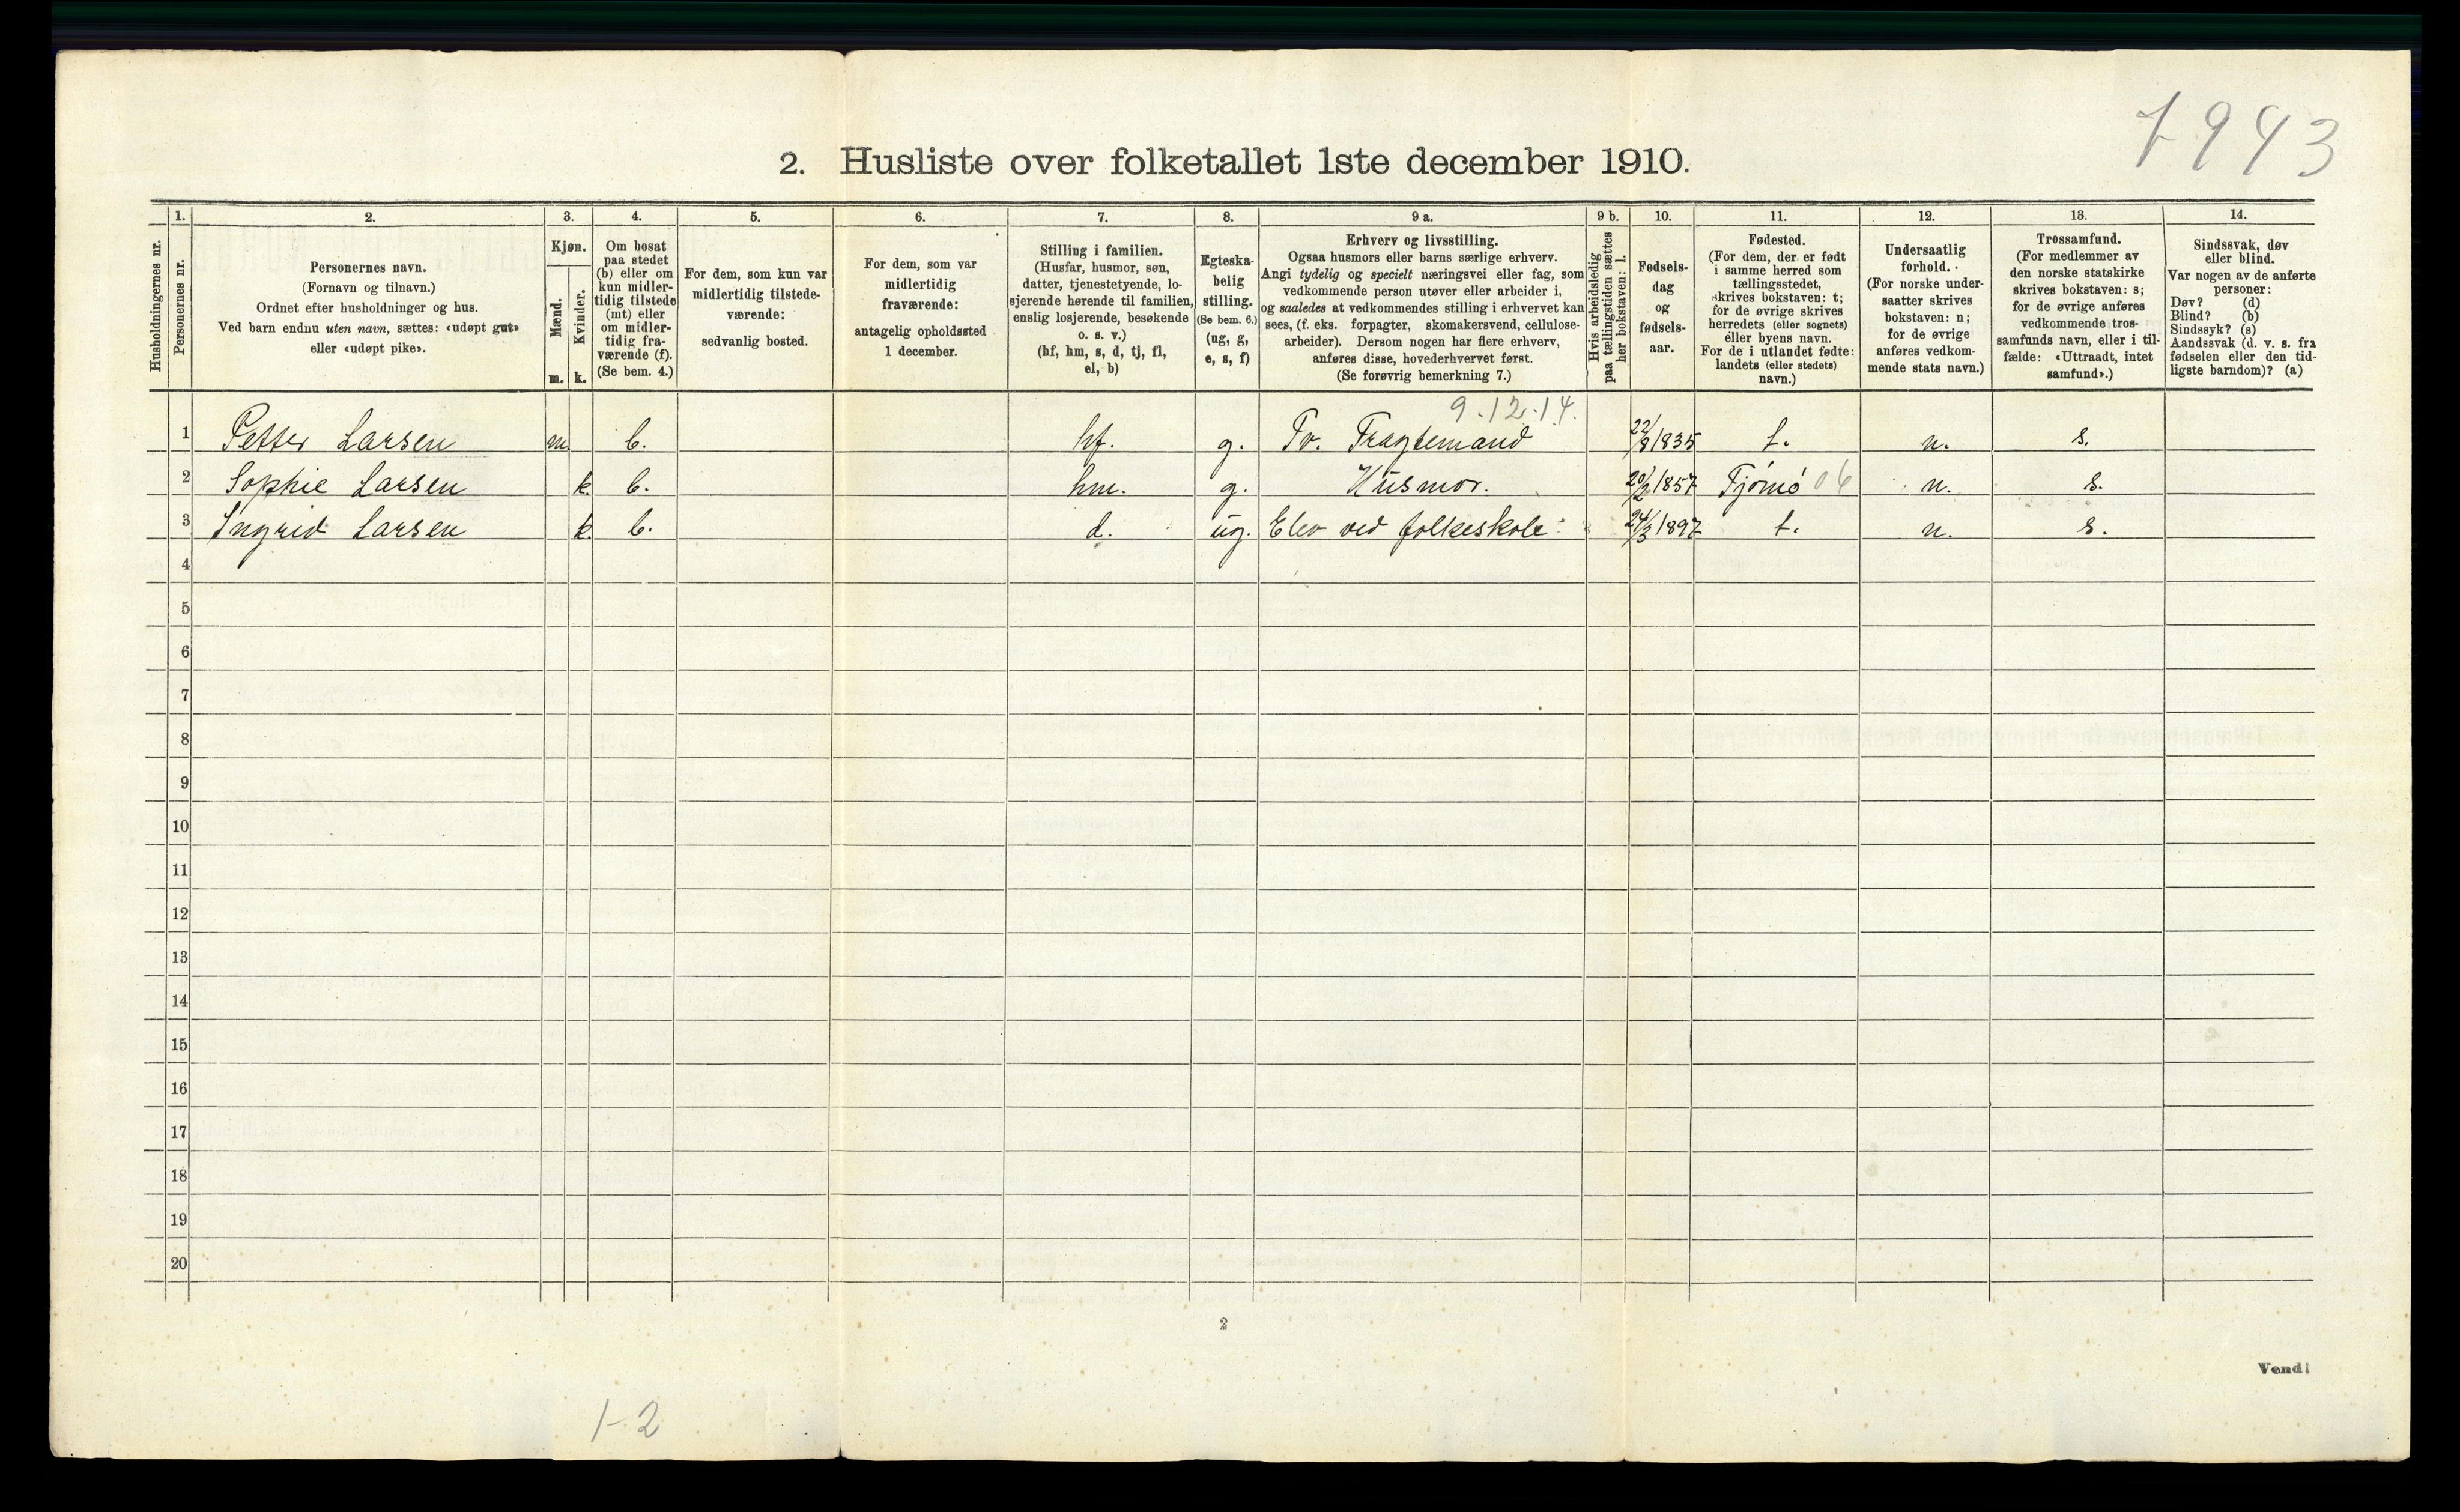 7943
2. Husliste over folketallet 1ste december 1910.
Husholdningernes nr.
1.
Personernes nr.
2.
Personernes navn.
(Fornavn og tilnavn.)
Ordnet efter husholdninger og hus.
Ved barn endnu uten navn, sættes: «udøpt gut»
eller «udøpt pike».
3.
Kjøn.
Mænd.
Kvinder.
m. k.
4.
Om bosat
paa stedet
(b) eller om
kun midler-
tidig tilstede
(mt) eller
om midler-
tidig fra-
værende (f).
(Se bem. 4.)
5.
For dem, som kun var
midlertidig tilstede-
værende:
sedvanlig bosted.
6.
For dem, som var
midlertidig
fraværende:
antagelig opholdssted
1 december.
7.
Stilling i familien.
(Husfar, husmor, søn,
datter, tjenestetyende, lo-
sjerende hørende til familien,
enslig losjerende, besøkende
o. s. v.)
(hf, hm, s, d, tj, fl,
el, b)
8.
Egteska-
belig
stilling.
(Se bem. 6.)
(ug, g,
e, s, f)
9 a.
Erhverv og livsstilling.
Ogsaa husmors eller barns særlige erhverv.
Angi tydelig og specielt næringsvei eller fag, som
vedkommende person utøver eller arbeider i,
og saaledes at vedkommendes stilling i erhvervet kan
sees, (f. eks. forpagter, skomakersvend, cellulose-
arbeider). Dersom nogen har flere erhverv,
anføres disse, hovederhvervet først.
(Se forøvrig bemerkning 7.)
9 b.
Hvis arbeidsledig
paa tællingstiden sættes
her bokstaven: l.
10.
Fødsels-
dag
og
fødsels-
aar.
11.
Fødested.
(For dem, der er født
i samme herred som
tællingsstedet,
skrives bokstaven: t;
for de øvrige skrives
herredets (eller sognets)
eller byens navn.
For de i utlandet fødte:
landets (eller stedets)
navn.)
12.
Undersaatlig
forhold.
(For norske under-
saatter skrives
bokstaven: n;
for de øvrige
anføres vedkom-
mende stats navn.)
13.
Trossamfund.
(For medlemmer av
den norske statskirke
skrives bokstaven: s;
for de øvrige anføres
vedkommende tros-
samfunds navn, eller i til-
fælde: «Uttraadt, intet
samfund».)
14.
Sindssvak, døv
eller blind.
Var nogen av de anførte
personer:
Døv? (d)
Blind? (b)
Sindssyk? (s)
Aandssvak (d. v. s. fra
fødselen eller den tid-
ligste barndom)? (a)
9.12.14.
1 Petter Larsen m. b. hf. g. Fv. Fragtemand 22/8 1835 t. n. s.
2 Sophie Larsen k. b. hm. g. Husmor. 20/2 1857 Tjømø 06 n. s.
3 Ingrid Larsen k. b. d. ug. Elev ved folkeskole 24/3 1897 t. n. s.
4
5
6
7
8
9
10
11
12
13
14
15
16
17
18
19
20
2
Vend!
1-2